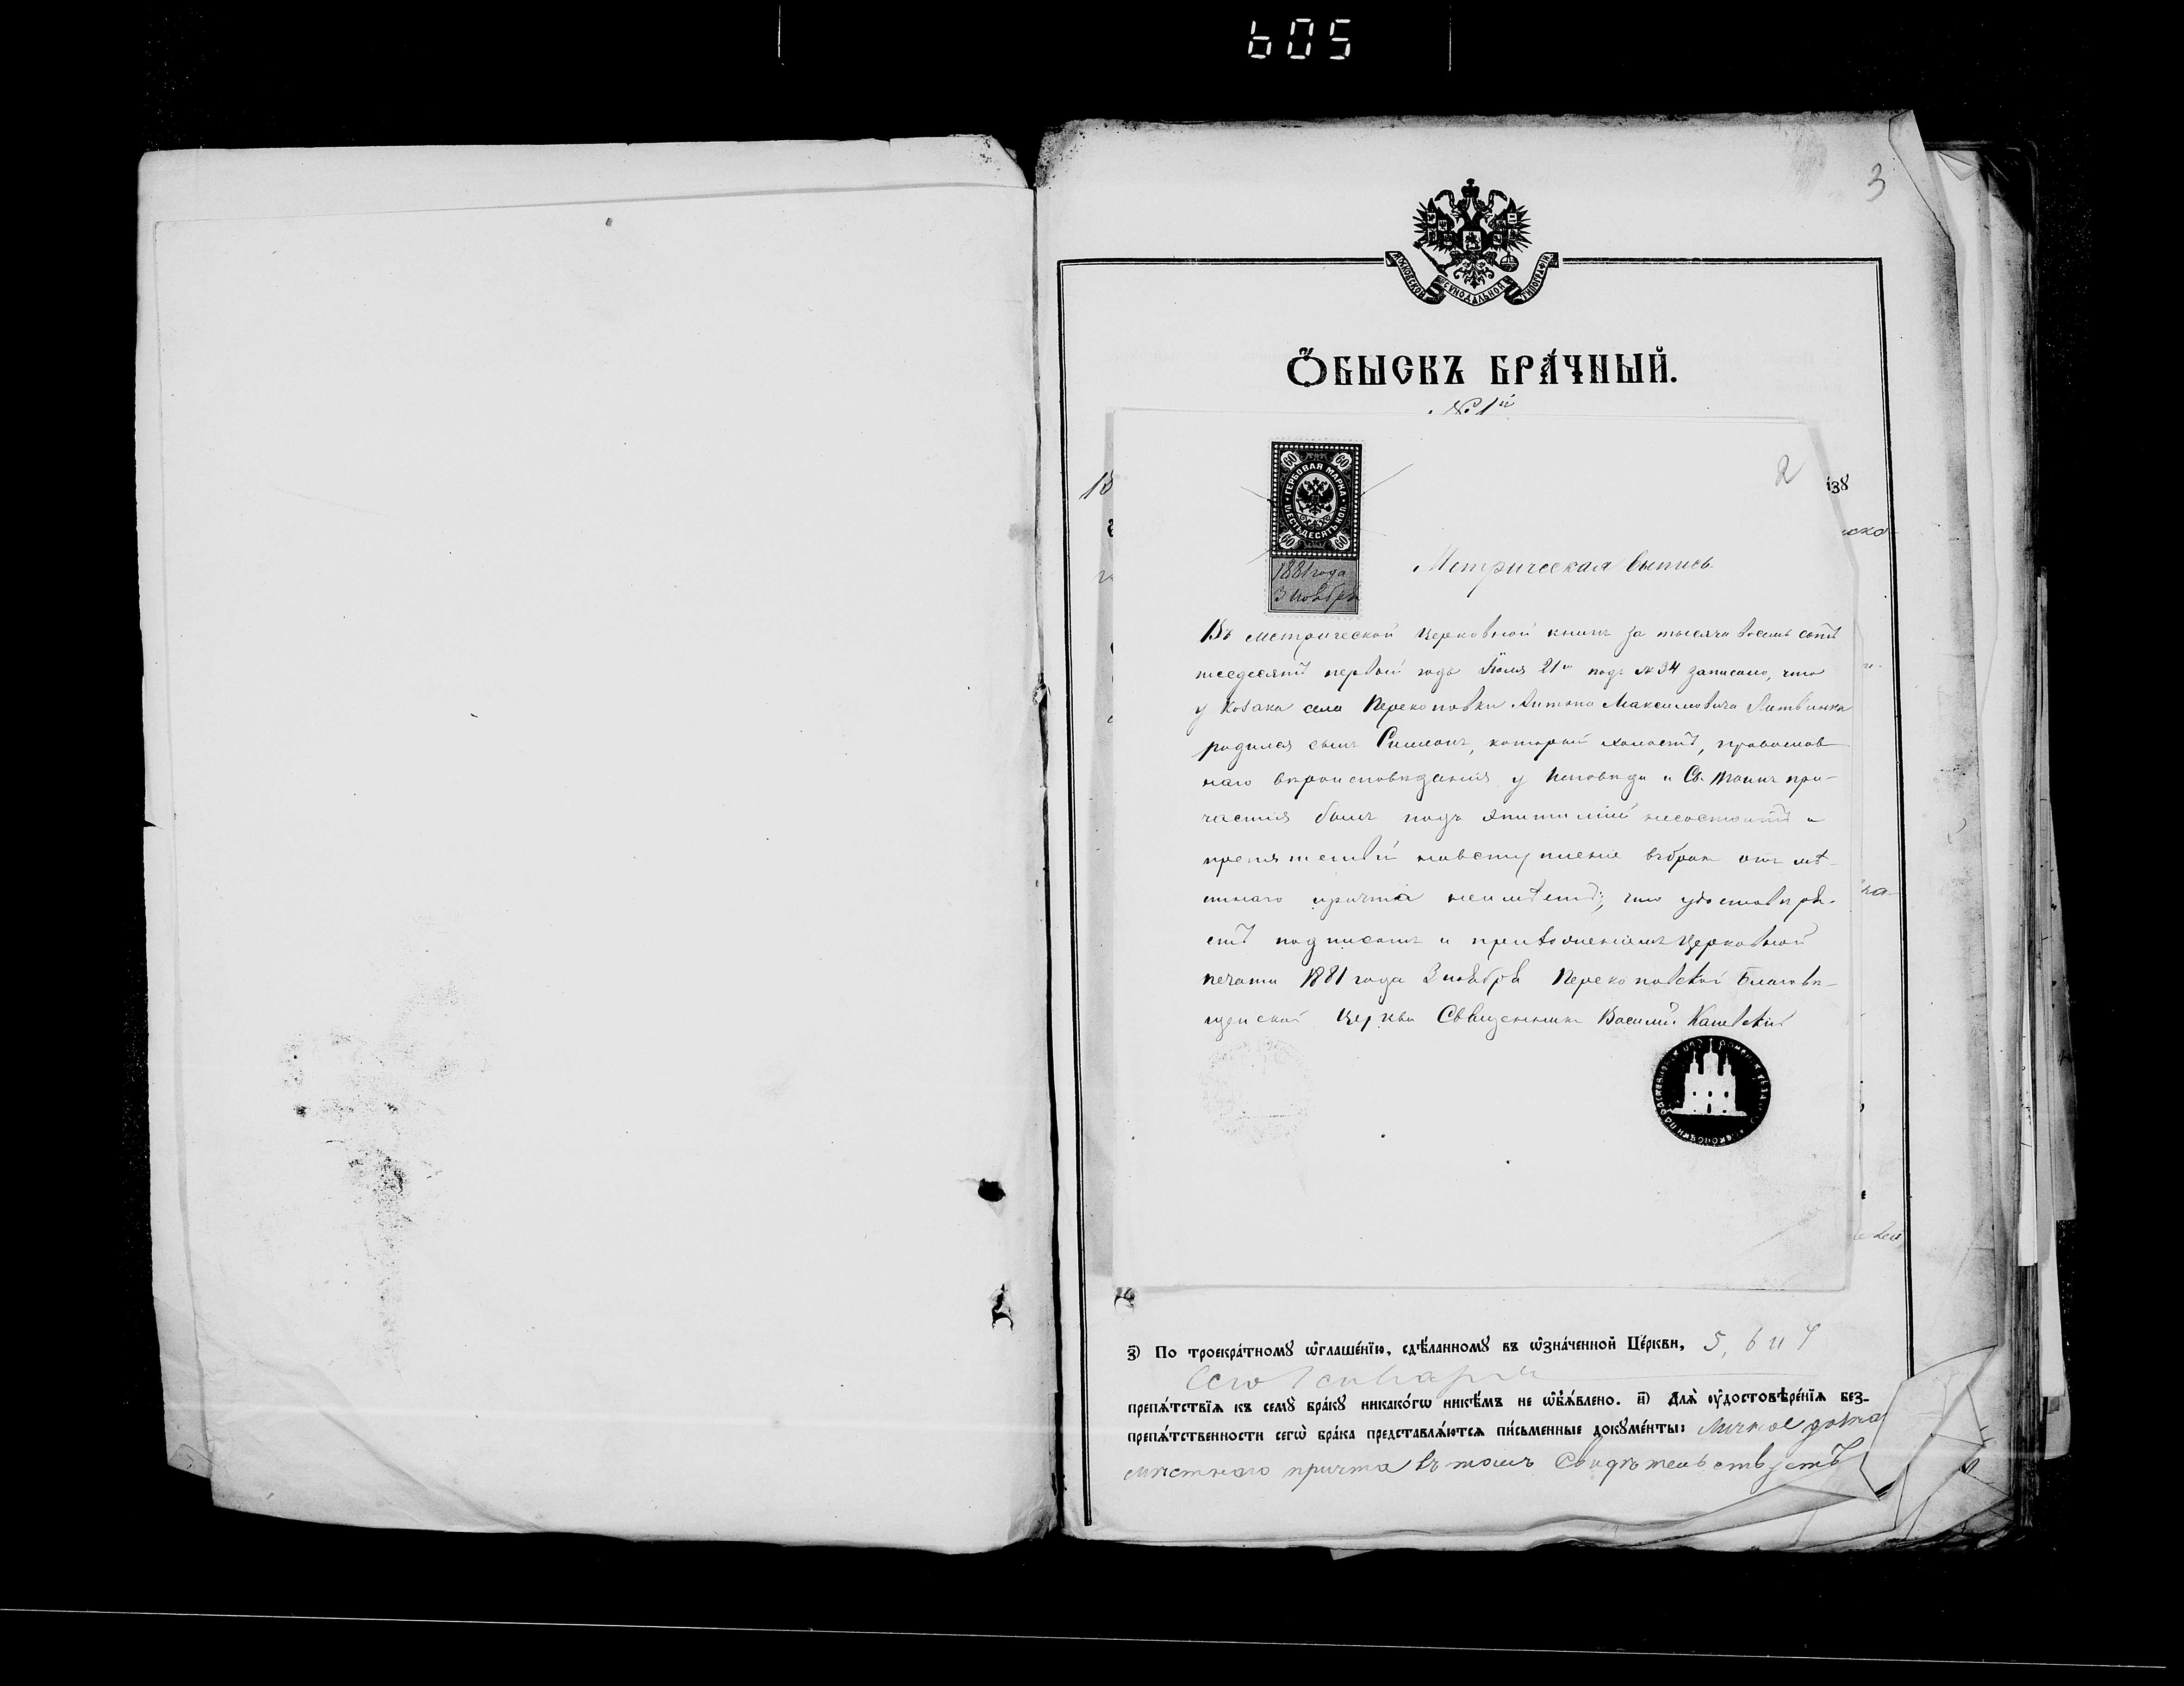 605
3
МОСКОВСКОЙ СѴНОДАЛЬНОЙ ТИПОГРАФІИ
Ѻ҆БЫСКЪ БРА́ЧНЫЙ.
№ 1й
2
ГЕРБОВАЯ МАРКА
ШЕСТЬДЕСЯТЪ КОП.
60 60 60 60
1881 года
3 ноября
Метрическая выпись.
Въ метрической церковной книгѣ за тысяча восемь сотъ
шесдесятъ первый годъ Іюля 21го подъ № 34 записано, что
у козака села Перекоповки Антона Максимовича Литвинка
родился сынъ Симеонъ, который холостъ, православ-
наго вѣроисповѣданія у исповѣди и Св. Таинъ при-
частія былъ подъ эпитиміей несостоитъ и
препятствій навступленіе вбракъ отъ мѣ-
стнаго причта неимѣетъ; что удостовѣря-
етъ подписомъ и приложеніемъ церковной
печати 1881 года 3 ноября Перекоповской Благовѣ-
щенской Церкви Священникъ Василій
ізꙋ
ско-
з҃) По троекра́тномꙋ ѡ҆глаше́нїю, сдѣ́ланномꙋ въ ѡ҆зна́ченной Це́ркви, 5, 6 и
сего Генваря
препѧ́тствїѧ къ семꙋ̀ бра́кꙋ никако́гѡ нике́мъ не ѡ҆бъѧ́влено. и҃) Длѧ̀ ᲂу҆достовѣре́нїѧ без-
препѧ́тственности сегѡ̀ бра́ка представлѧ́ютсѧ пи́сьменные докꙋме́нты: личное дозна
мѣстнаго причта въ томъ свидѣтельствуетъ